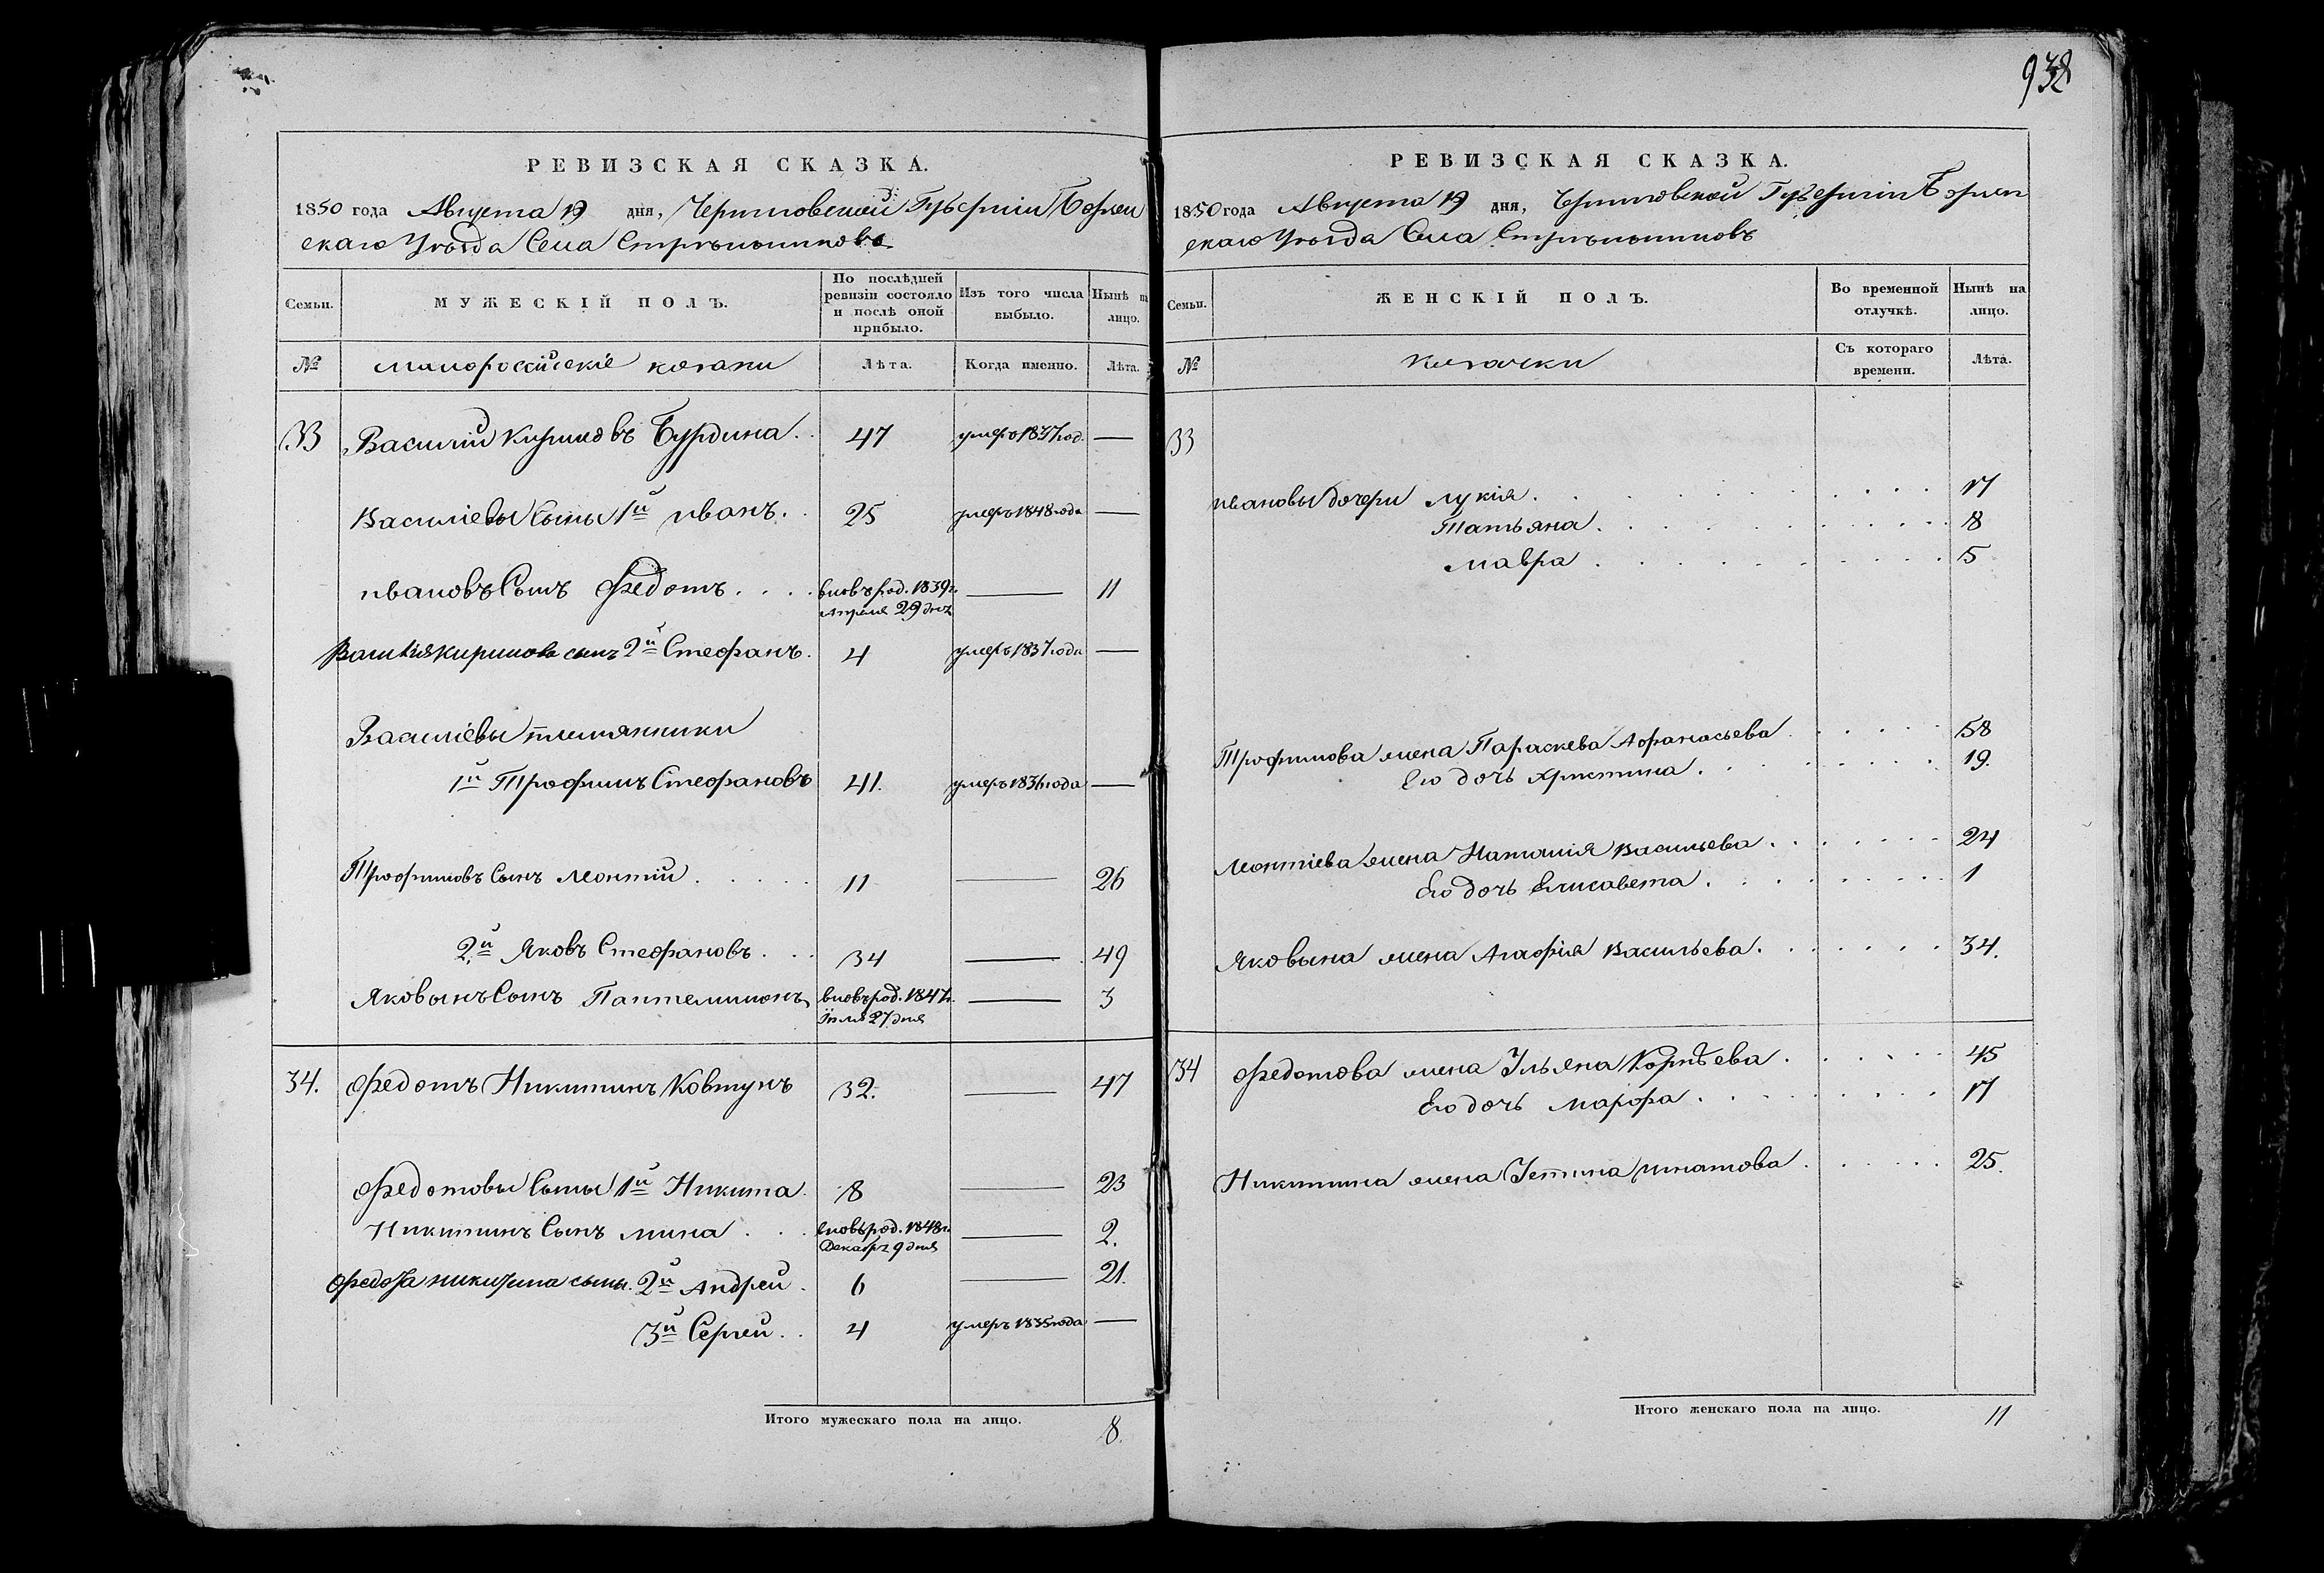 938
РЕВИЗСКАЯ СКАЗКА.
1850 года Августа 19 дня, Черниговской Губерніи Борзен
скаго Уѣзда Села Стрѣльниковъ
Семьи. МУЖЕСКІЙ ПОЛЪ. По послѣдней ревизіи состояло и послѣ оной прибыло. Изъ того числа выбыло. Нынѣ на лицо.
№ малороссійскіе козаки Лѣта. Когда именно. Лѣта.
33 Василій Кириловъ Бурдина 47 умеръ 1837 год. —
Василіевы Сыны 1й иванъ 25 умеръ 1848 года —
ивановъ Сынъ Федотъ вновь род. 1839 г. Апреля 29 дня — 11
Василія Кирилова сынъ 2й Стефанъ 4 умеръ 1837 года —
Василіевы племянники
1й Трофимъ Стефановъ 41. умеръ 1836 года —
Трофимовъ Сынъ Леонтій 11 — 26
2й Яковъ Стефановъ 34 — 49
Яковынъ Сынъ Пантелимонъ вновь род. 1847 г. Іюля 27 дня — 3
34. Федотъ Никитинъ Ковтунъ 32. — 47
Федотовы Сыны 1й Никита 8 — 23
Никитинъ Сынъ мина вновь род. 1848 г. Декабря 9 дня — 2.
Федота никитина сыны 2й Андрей 6 — 21.
3й Сергей 4 умеръ 1835 года —
Итого мужескаго пола на лицо. 8.
РЕВИЗСКАЯ СКАЗКА.
1850 года Августа 19 дня, Черниговской Губерніи Борзен
скаго Уѣзда Села Стрѣльниковъ
Семьи. ЖЕНСКІЙ ПОЛЪ. Во временной отлучкѣ. Нынѣ на лицо.
№ козачки Съ котораго времени. Лѣта.
33
ивановы дочери лукія 17
Татьяна 8
мавра 5
Трофимова жена Параскева Афанасьева 58
Его дочь Христина 19.
Леонтіева жена Наталія Васильева 24
Его дочь Елисавета 1
Яковына жена Агафія Васильева 34.
34 Федотова жена Ульяна Корнѣева 45
Его дочь марфа 17
Никитина жена Устина игнатова 25.
Итого женскаго пола на лицо. 11